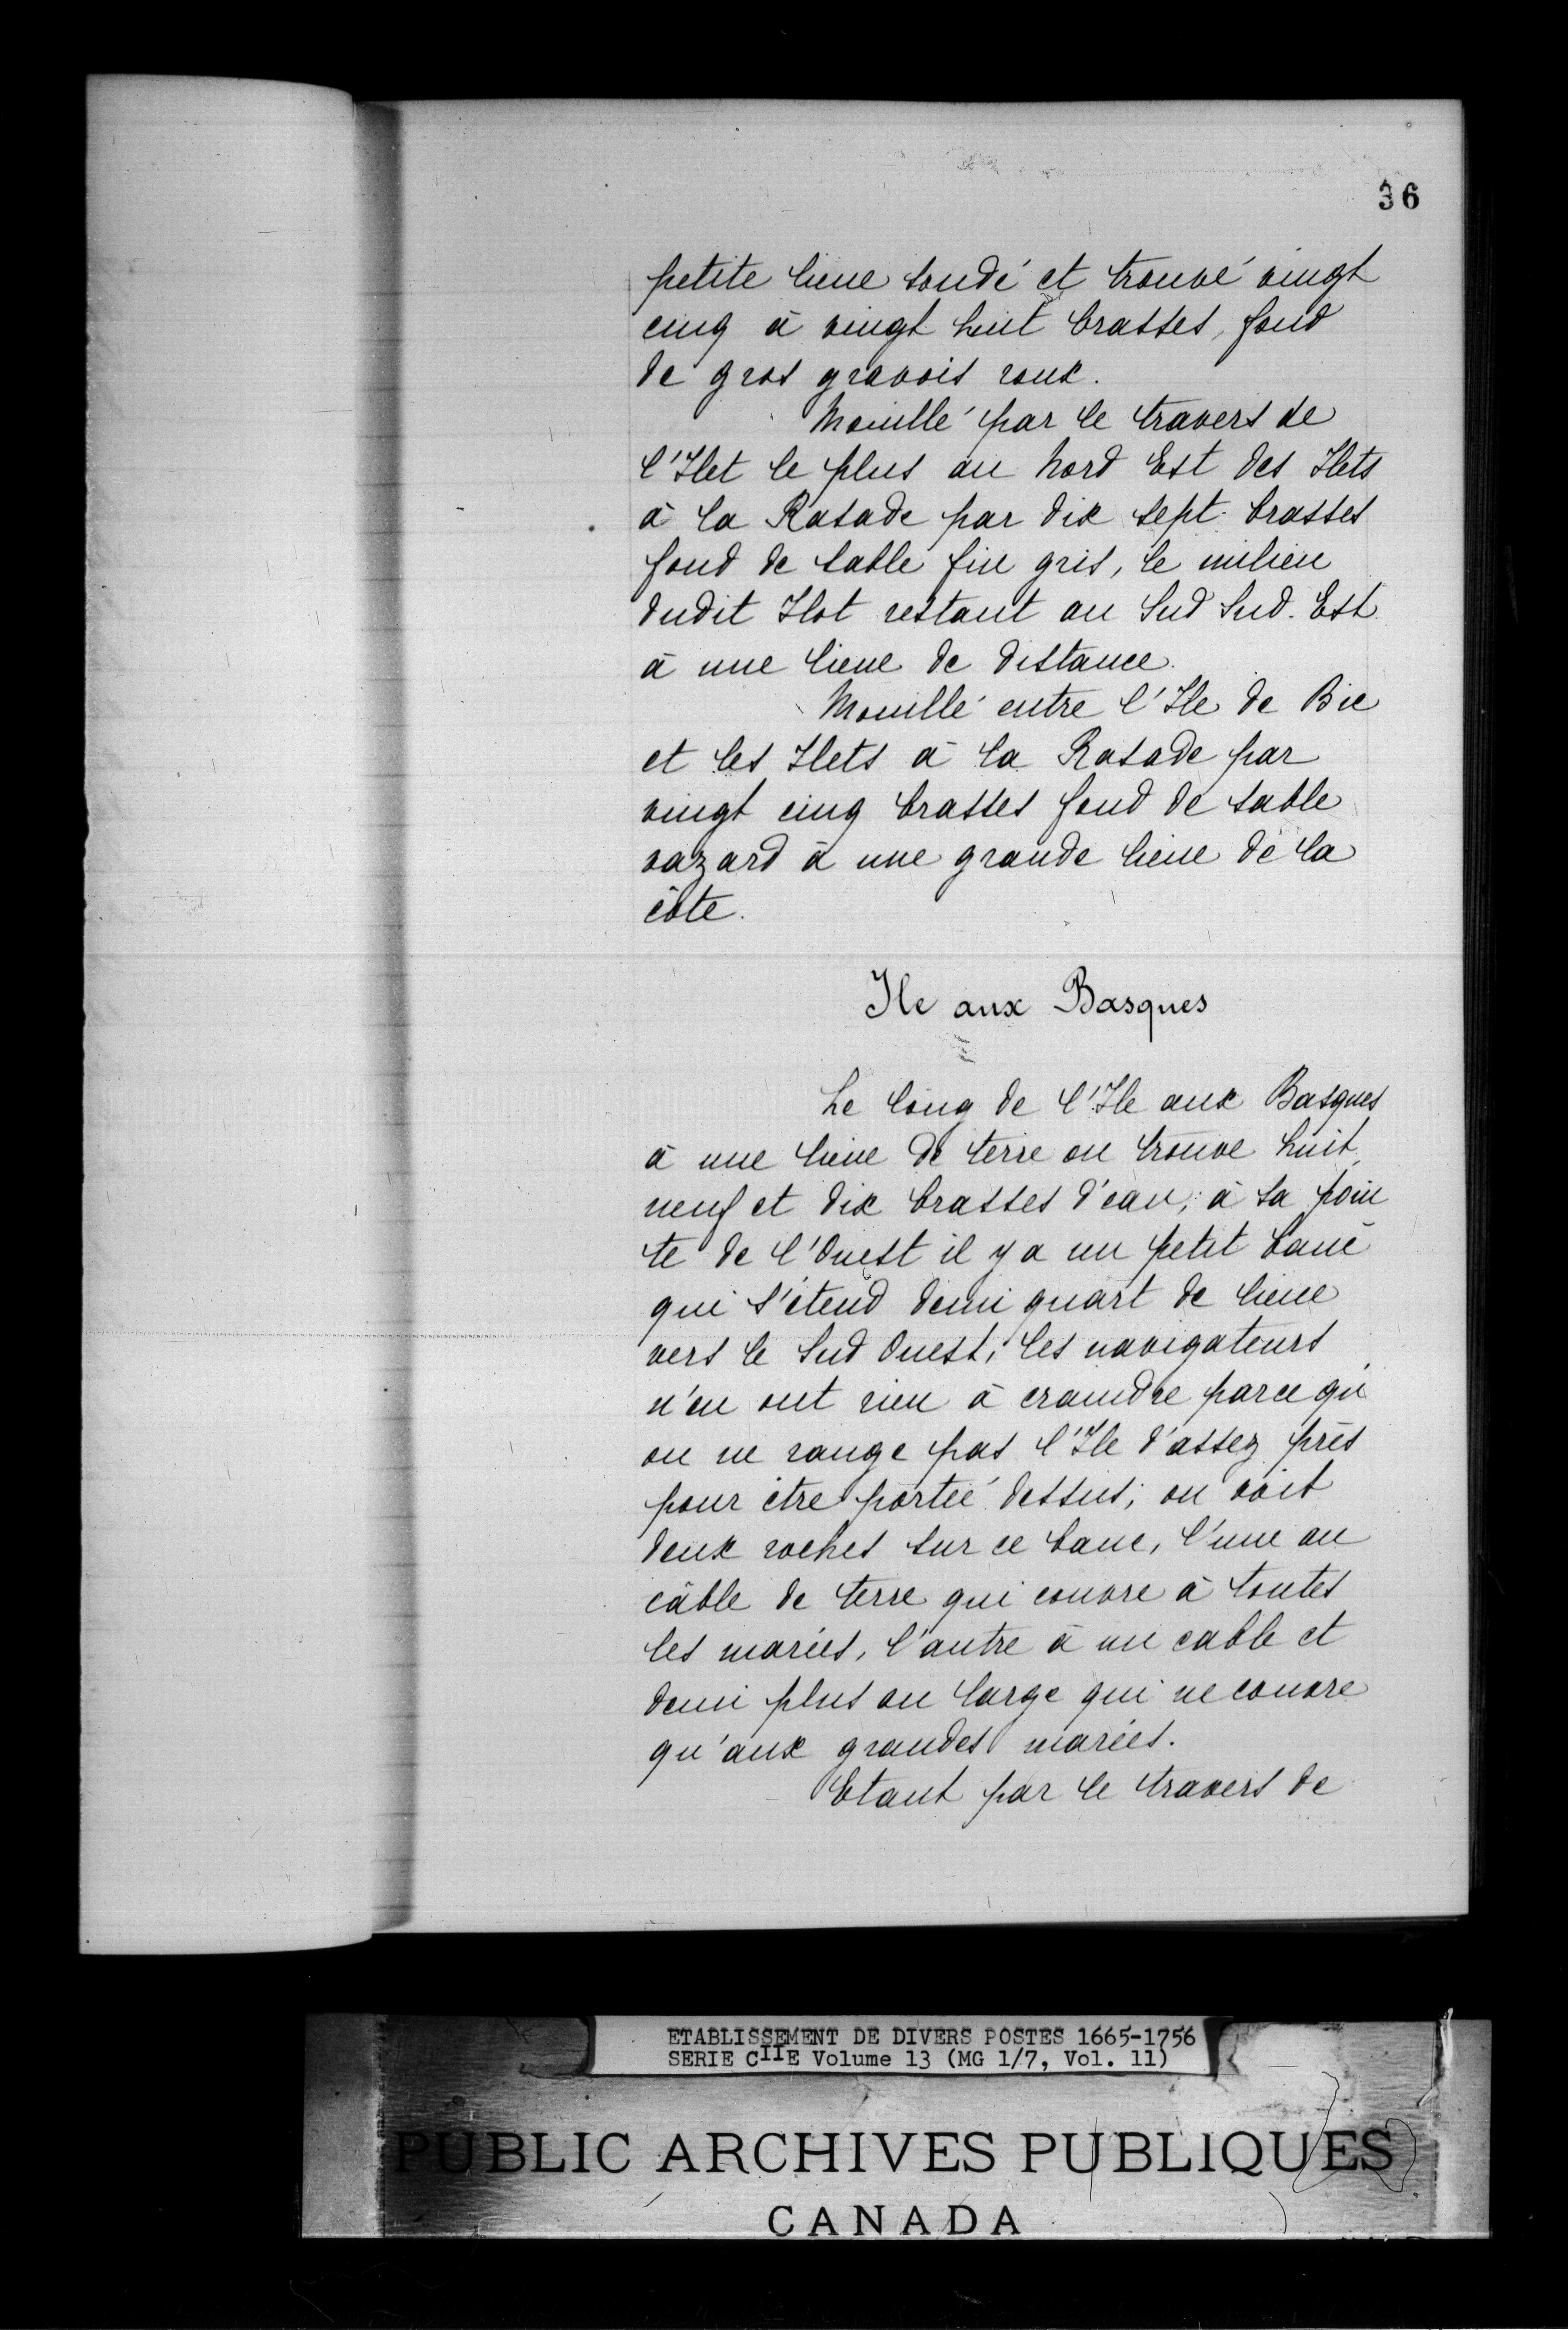 36
petite lieue sondé et trouvé vingt
cinq à vingt huit brasses, fond
de gros gravois roux.
Mouillé par le travers de
l'Ilet le plus au Nord Est des Ilets
à la Rasade par dix sept brasses
fond de sable fin gris, le milieu
dudit Ilot restant au Sud Sud. Est
à une lieue de distance.
Mouillé entre l'Ile de Bic
et les Ilets à la Rasade par
vingt cinq brasses fond de sable
vazard à une grande lieue de la
côte.
Ile aux Basques
Le long de l'Ile aux Basques
à une lieue de terre on trouve huit
neuf et dix brasses d'eau; à sa poin
te de l'Ouest il y a un petit banc
qui s'étend demi quart de lieue
vers le Sud Ouest, les navigateurs
n'en ont rien à craindre parce qu'
on ne range pas l'Ile d'assez près
pour être porté dessus; on voit
deux roches sur ce banc, l'une au
câble de terre qui couvre à toutes
les marées, l'autre à un cable et
demi plus au large qui ne couvre
qu'aux grandes marées.
Etant par le travers de
ETABLISSEMENT DE DIVERS POSTES 1665-1756
SERIE CIIE Volume 13 (MG 1/7, Vol. 11)
PUBLIC ARCHIVES PUBLIQUES
CANADA